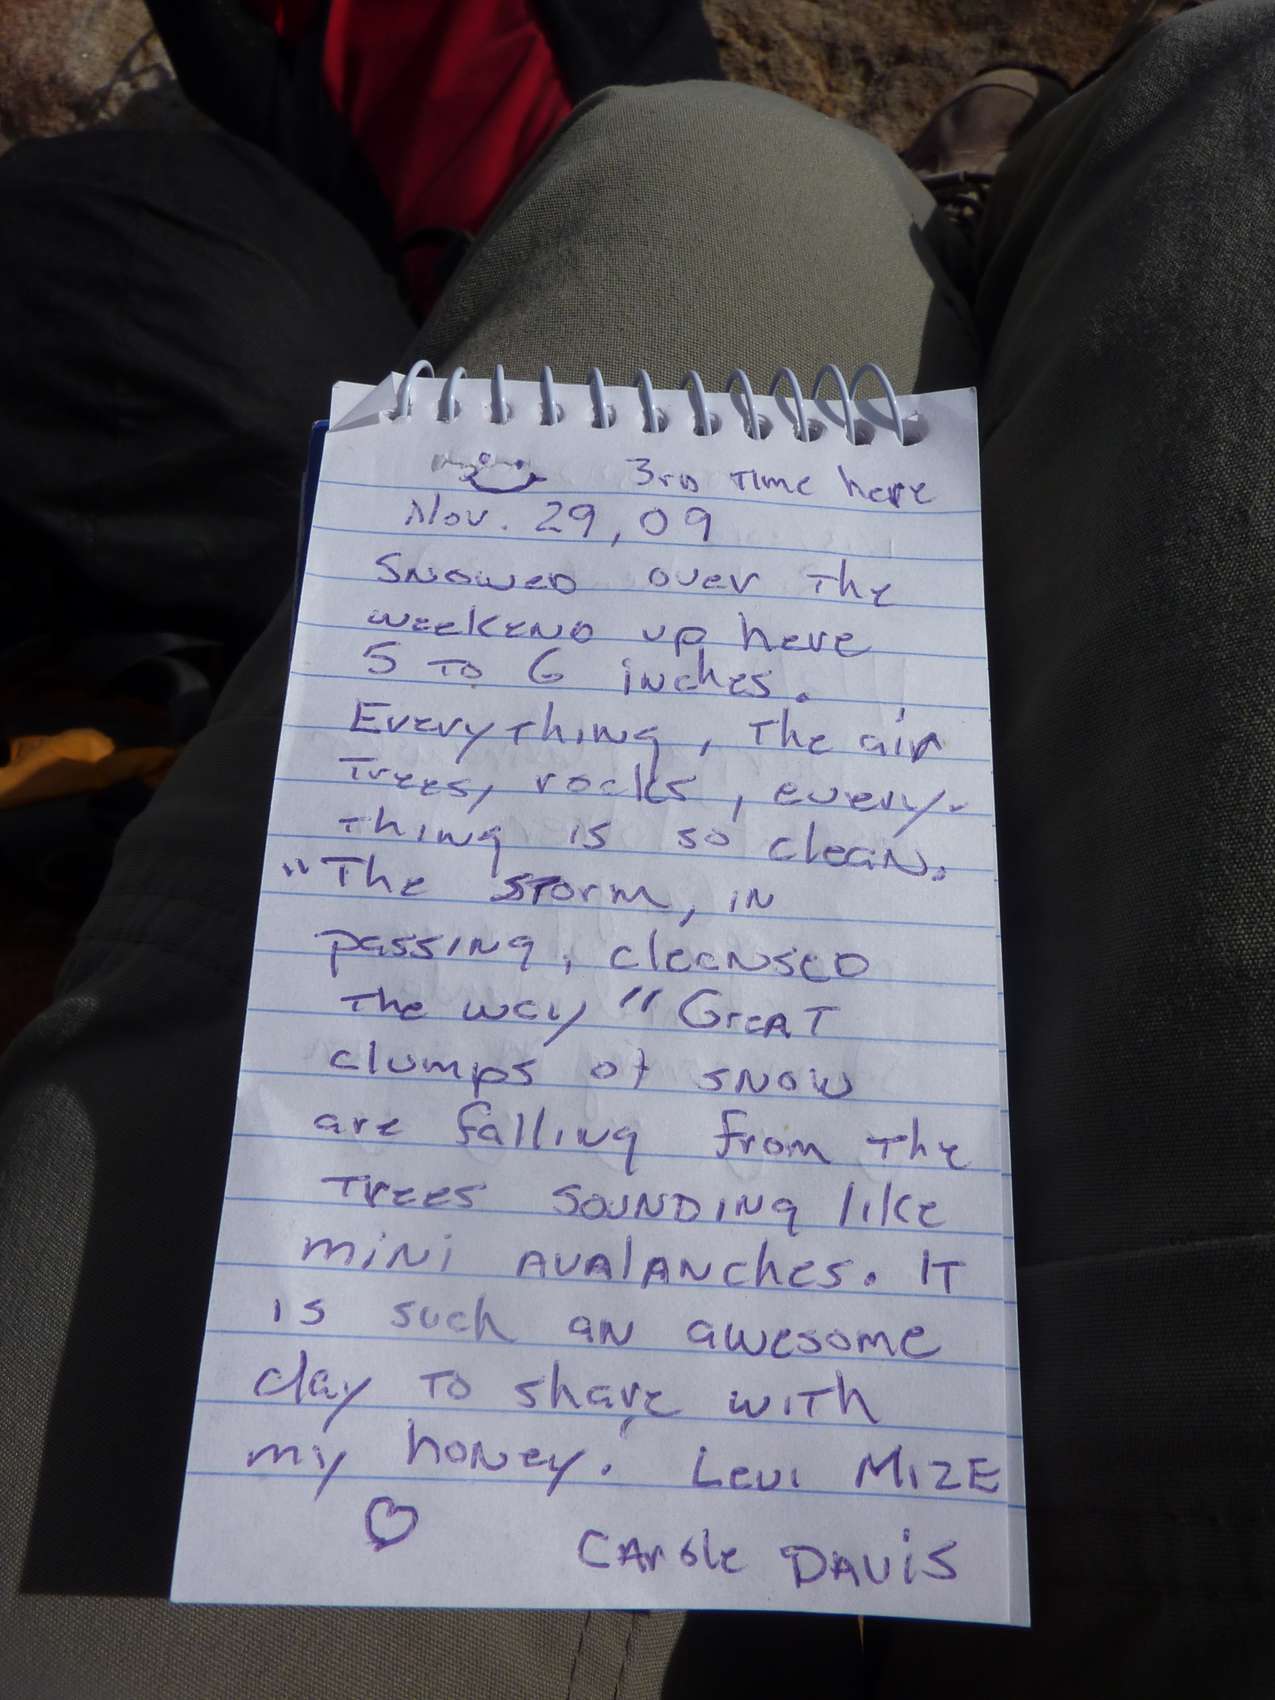 3rd Time here
Nov. 29, 09
Snowed over The
weekend up here
5 To 6 inches.
Everything, The air
Trees, rocks, every-
Thing is so clean.
"The storm, in
passing, cleansed
The way" Great
clumps of snow
are falling from The
Trees sounding like
mini avalanches. It
is such an awesome
day To share with
my honey. Levi Mize
Carole Davis